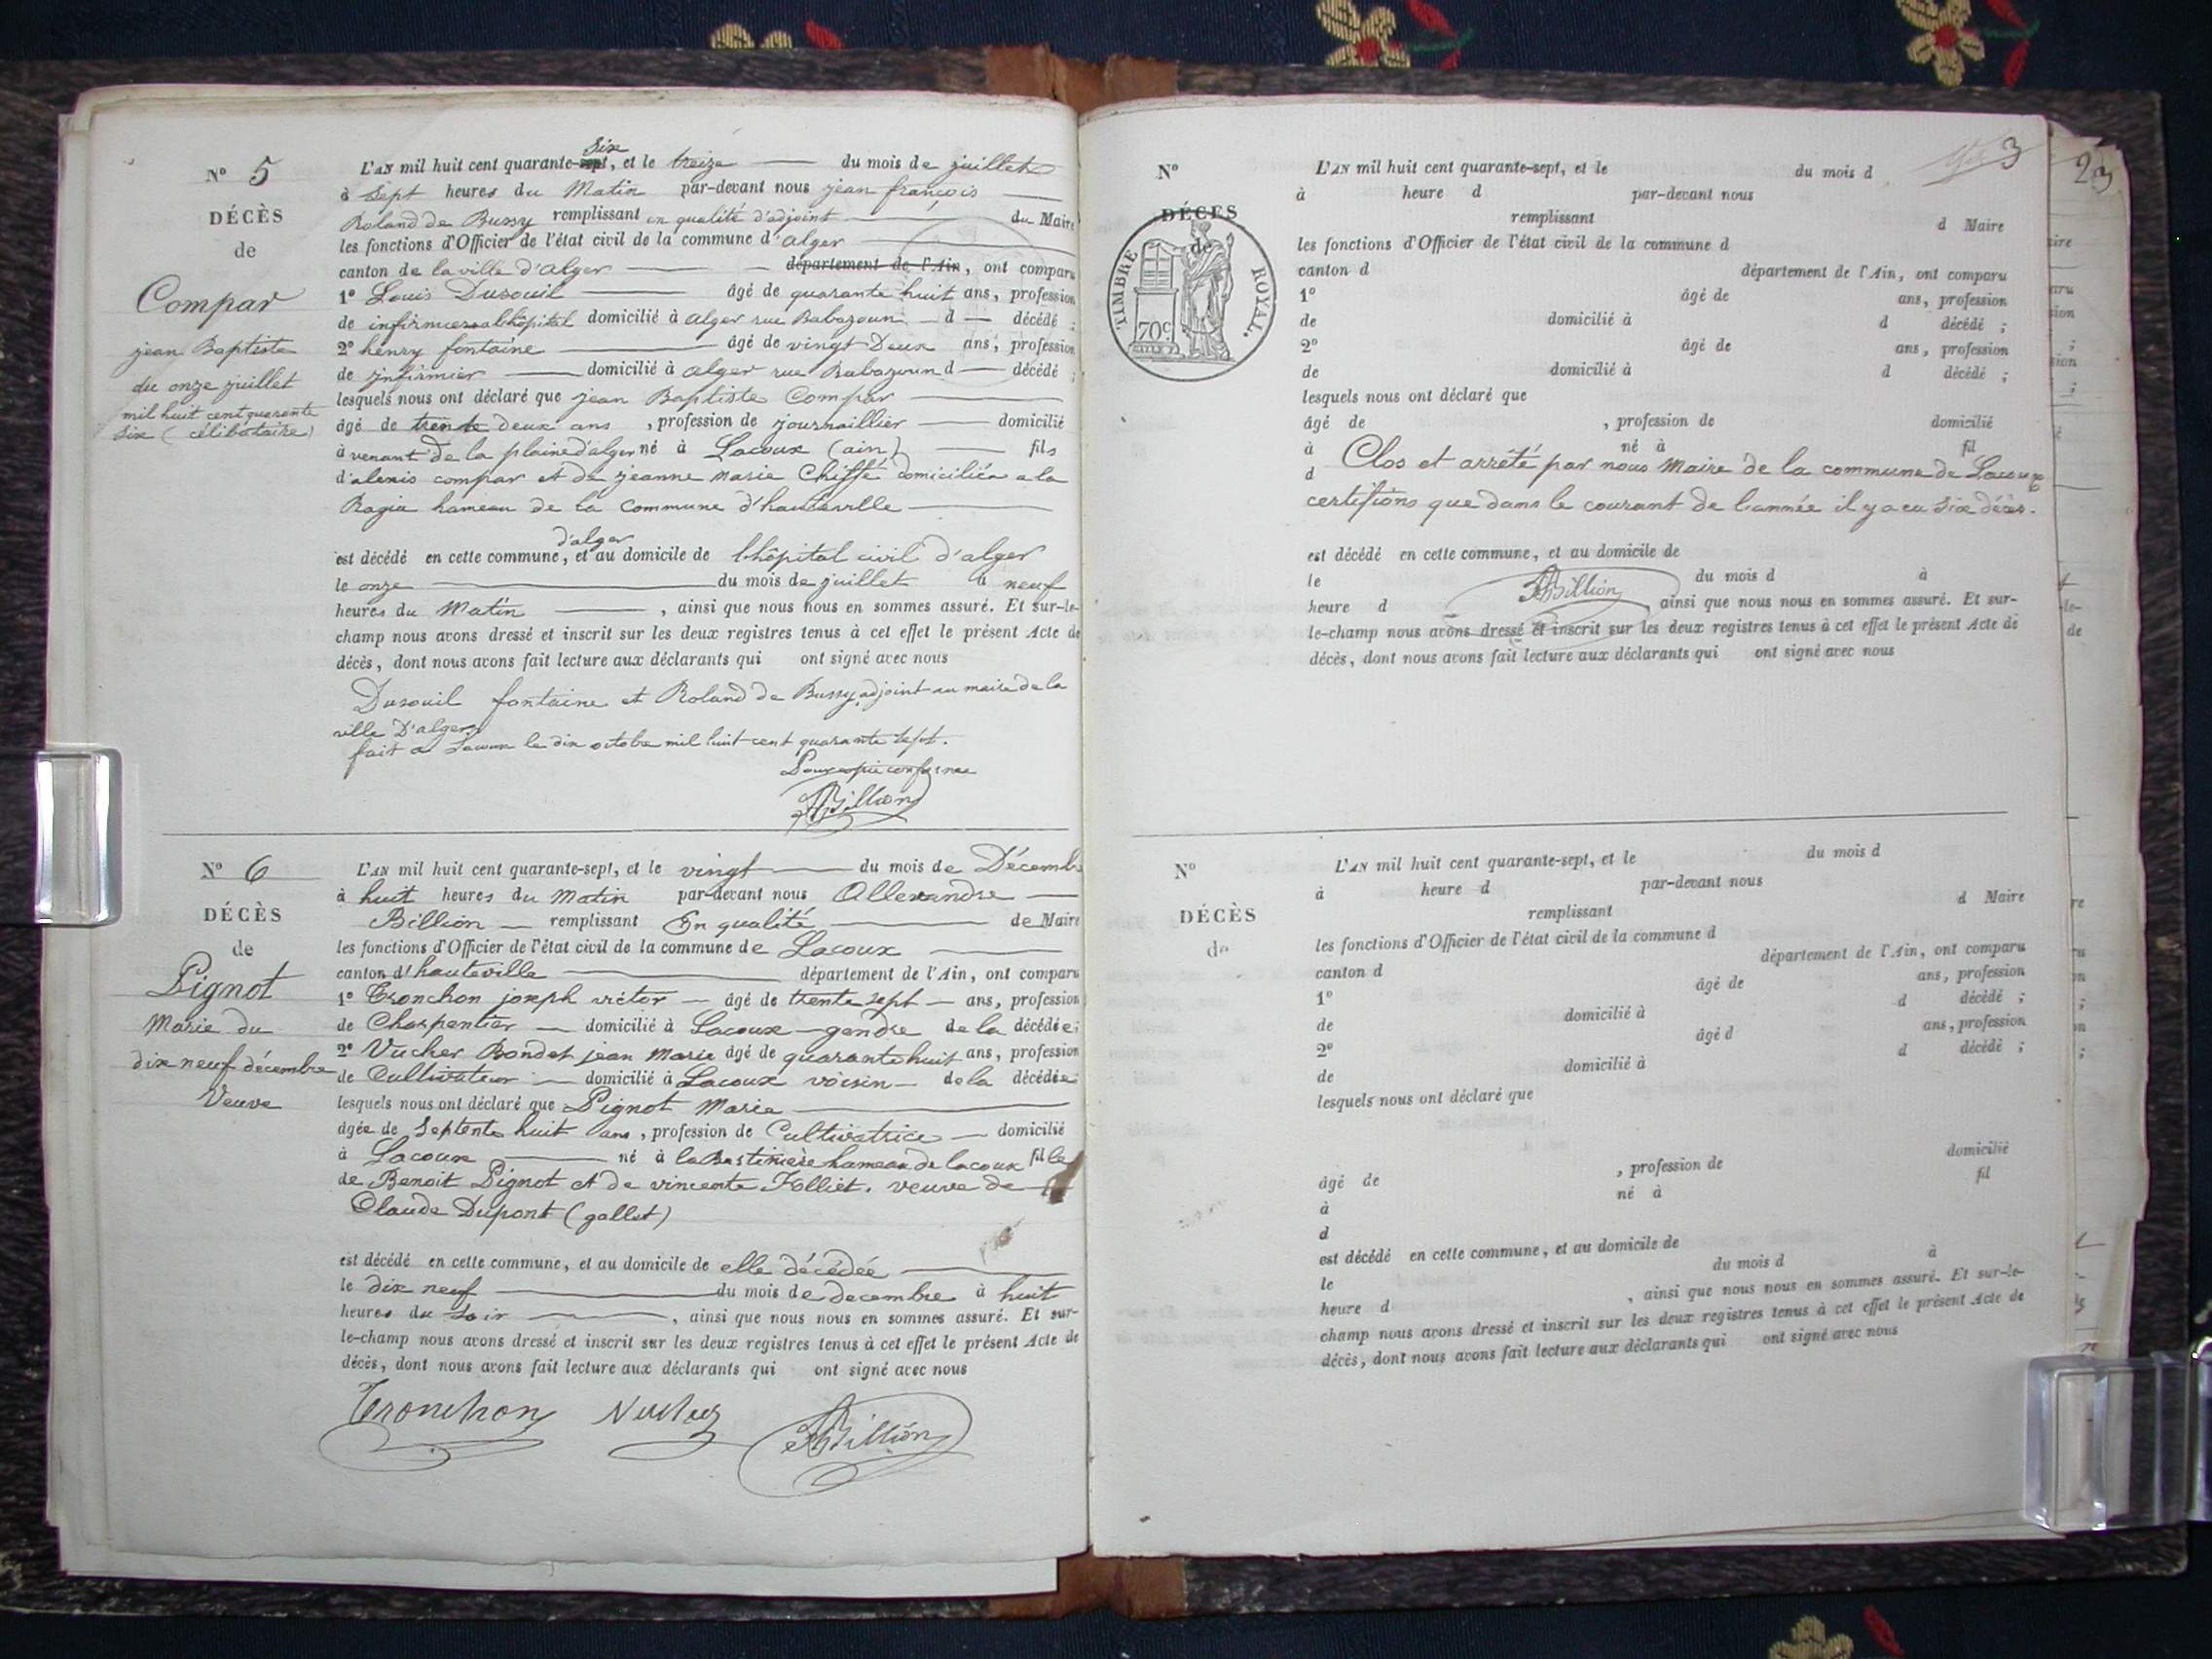 Nº 5
DÉCÈS
de
Compar
jean Baptiste
du onze juillet
mil huit cent quarante
six (célibataire)
L'AN mil huit cent quarante-sept six, et le treize du mois de juillet
à sept heures du Matin par-devant nous jean françois
Roland de Bussy remplissant en qualité d'adjoint du Maire
les fonctions d'Officier de l'état civil de la commune d'alger
canton de la ville d'alger département de l'Ain, ont comparu
1º Louis Dusouil âgé de quarante huit ans, profession
de infirmier a lhôpital domicilié à alger rue Babazoun d décédé ;
2º henry fontaine âgé de vingt Deux ans, profession
de infirmier domicilié à alger rue Babazoun d décédé ;
lesquels nous ont déclaré que jean Baptiste Compar
âgé de trente deux ans , profession de journaillier domicilié
à venant de la plaine d'alger né à Lacoux (ain) fils
d'alexis compar et de jeanne marie Chiffé domiciliés a la
Ragia hameau de la commune d'hauteville
est décédé en cette commune d'alger, et au domicile de lhôpital civil d'alger
le onze du mois de juillet à neuf
heures du Matin , ainsi que nous nous en sommes assuré. Et sur-le-
champ nous avons dressé et inscrit sur les deux registres tenus à cet effet le présent Acte de
décès, dont nous avons fait lecture aux déclarants qui ont signé avec nous
Dusouil fontaine et Roland de Bussy adjoint au maire de la
ville D'alger
fait a Lacoux le dix octobre mil huit cent quarante sept.
Pour copie conforme
ABillion
Nº 6
DÉCÈS
de
Pignot
Marie du
dix neuf décembre
Veuve
L'AN mil huit cent quarante-sept, et le vingt du mois de Décembre
à huit heures du Matin par-devant nous Allexandre
Billion remplissant En qualité de Maire
les fonctions d'Officier de l'état civil de la commune de Lacoux
canton d'hauteville département de l'Ain, ont comparu
1º Tronchon joseph victor âgé de trente sept ans, profession
de Charpentier domicilié à Lacoux gendre de la décédée ;
2º Vucher Bondet jean Marie âgé de quarante huit ans, profession
de Cultivateur domicilié à Lacoux voisin de la décédée
lesquels nous ont déclaré que Pignot Marie
âgée de Septente huit ans, profession de Cultivatrice domicilié
à Lacoux né à la Bastinière hameau de lacoux fille
de Benoit Pignot et de vincente Folliet. veuve de
Claude Dupont (gallet)
est décédé en cette commune, et au domicile de elle décédée
le dix neuf du mois de decembre à huit
heures du Soir , ainsi que nous nous en sommes assuré. Et sur-
le-champ nous avons dressé et inscrit sur les deux registres tenus à cet effet le présent Acte de
décès, dont nous avons fait lecture aux déclarants qui ont signé avec nous
Tronchon Vucher ABillion
3
Nº
DÉCÈS
de
TIMBRE ROYAL.
70c
L'AN mil huit cent quarante-sept, et le du mois d
à heure d par-devant nous
remplissant d Maire
les fonctions d'Officier de l'état civil de la commune d
canton d département de l'Ain, ont comparu
1º âgé de ans, profession
de domicilié à d décédé ;
2º âgé de ans, profession
de domicilié à d décédé ;
lesquels nous ont déclaré que
âgé de , profession de domicilié
à né à fil
d Clos et arrêté par nous Maire de la commune de Lacoux
certifions que dans le courant de l'année il y a eu Six décès.
est décédé en cette commune, et au domicile de
le du mois d à
heure d ainsi que nous nous en sommes assuré. Et sur-
le-champ nous avons dressé et inscrit sur les deux registres tenus à cet effet le présent Acte de
décès, dont nous avons fait lecture aux déclarants qui ont signé avec nous
ABillion
Nº
DÉCÈS
de
L'AN mil huit cent quarante-sept, et le du mois d
à heure d par-devant nous
remplissant d Maire
les fonctions d'Officier de l'état civil de la commune d
canton d département de l'Ain, ont comparu
1º âgé de ans, profession
de domicilié à d décédé ;
2º âgé d ans, profession
de domicilié à d décédé ;
lesquels nous ont déclaré que
âgé de , profession de domicilié
à né à fil
d
est décédé en cette commune, et au domicile de
le du mois d à
heure d , ainsi que nous nous en sommes assuré. Et sur-le-
champ nous avons dressé et inscrit sur les deux registres tenus à cet effet le présent Acte de
décès, dont nous avons fait lecture aux déclarants qui ont signé avec nous